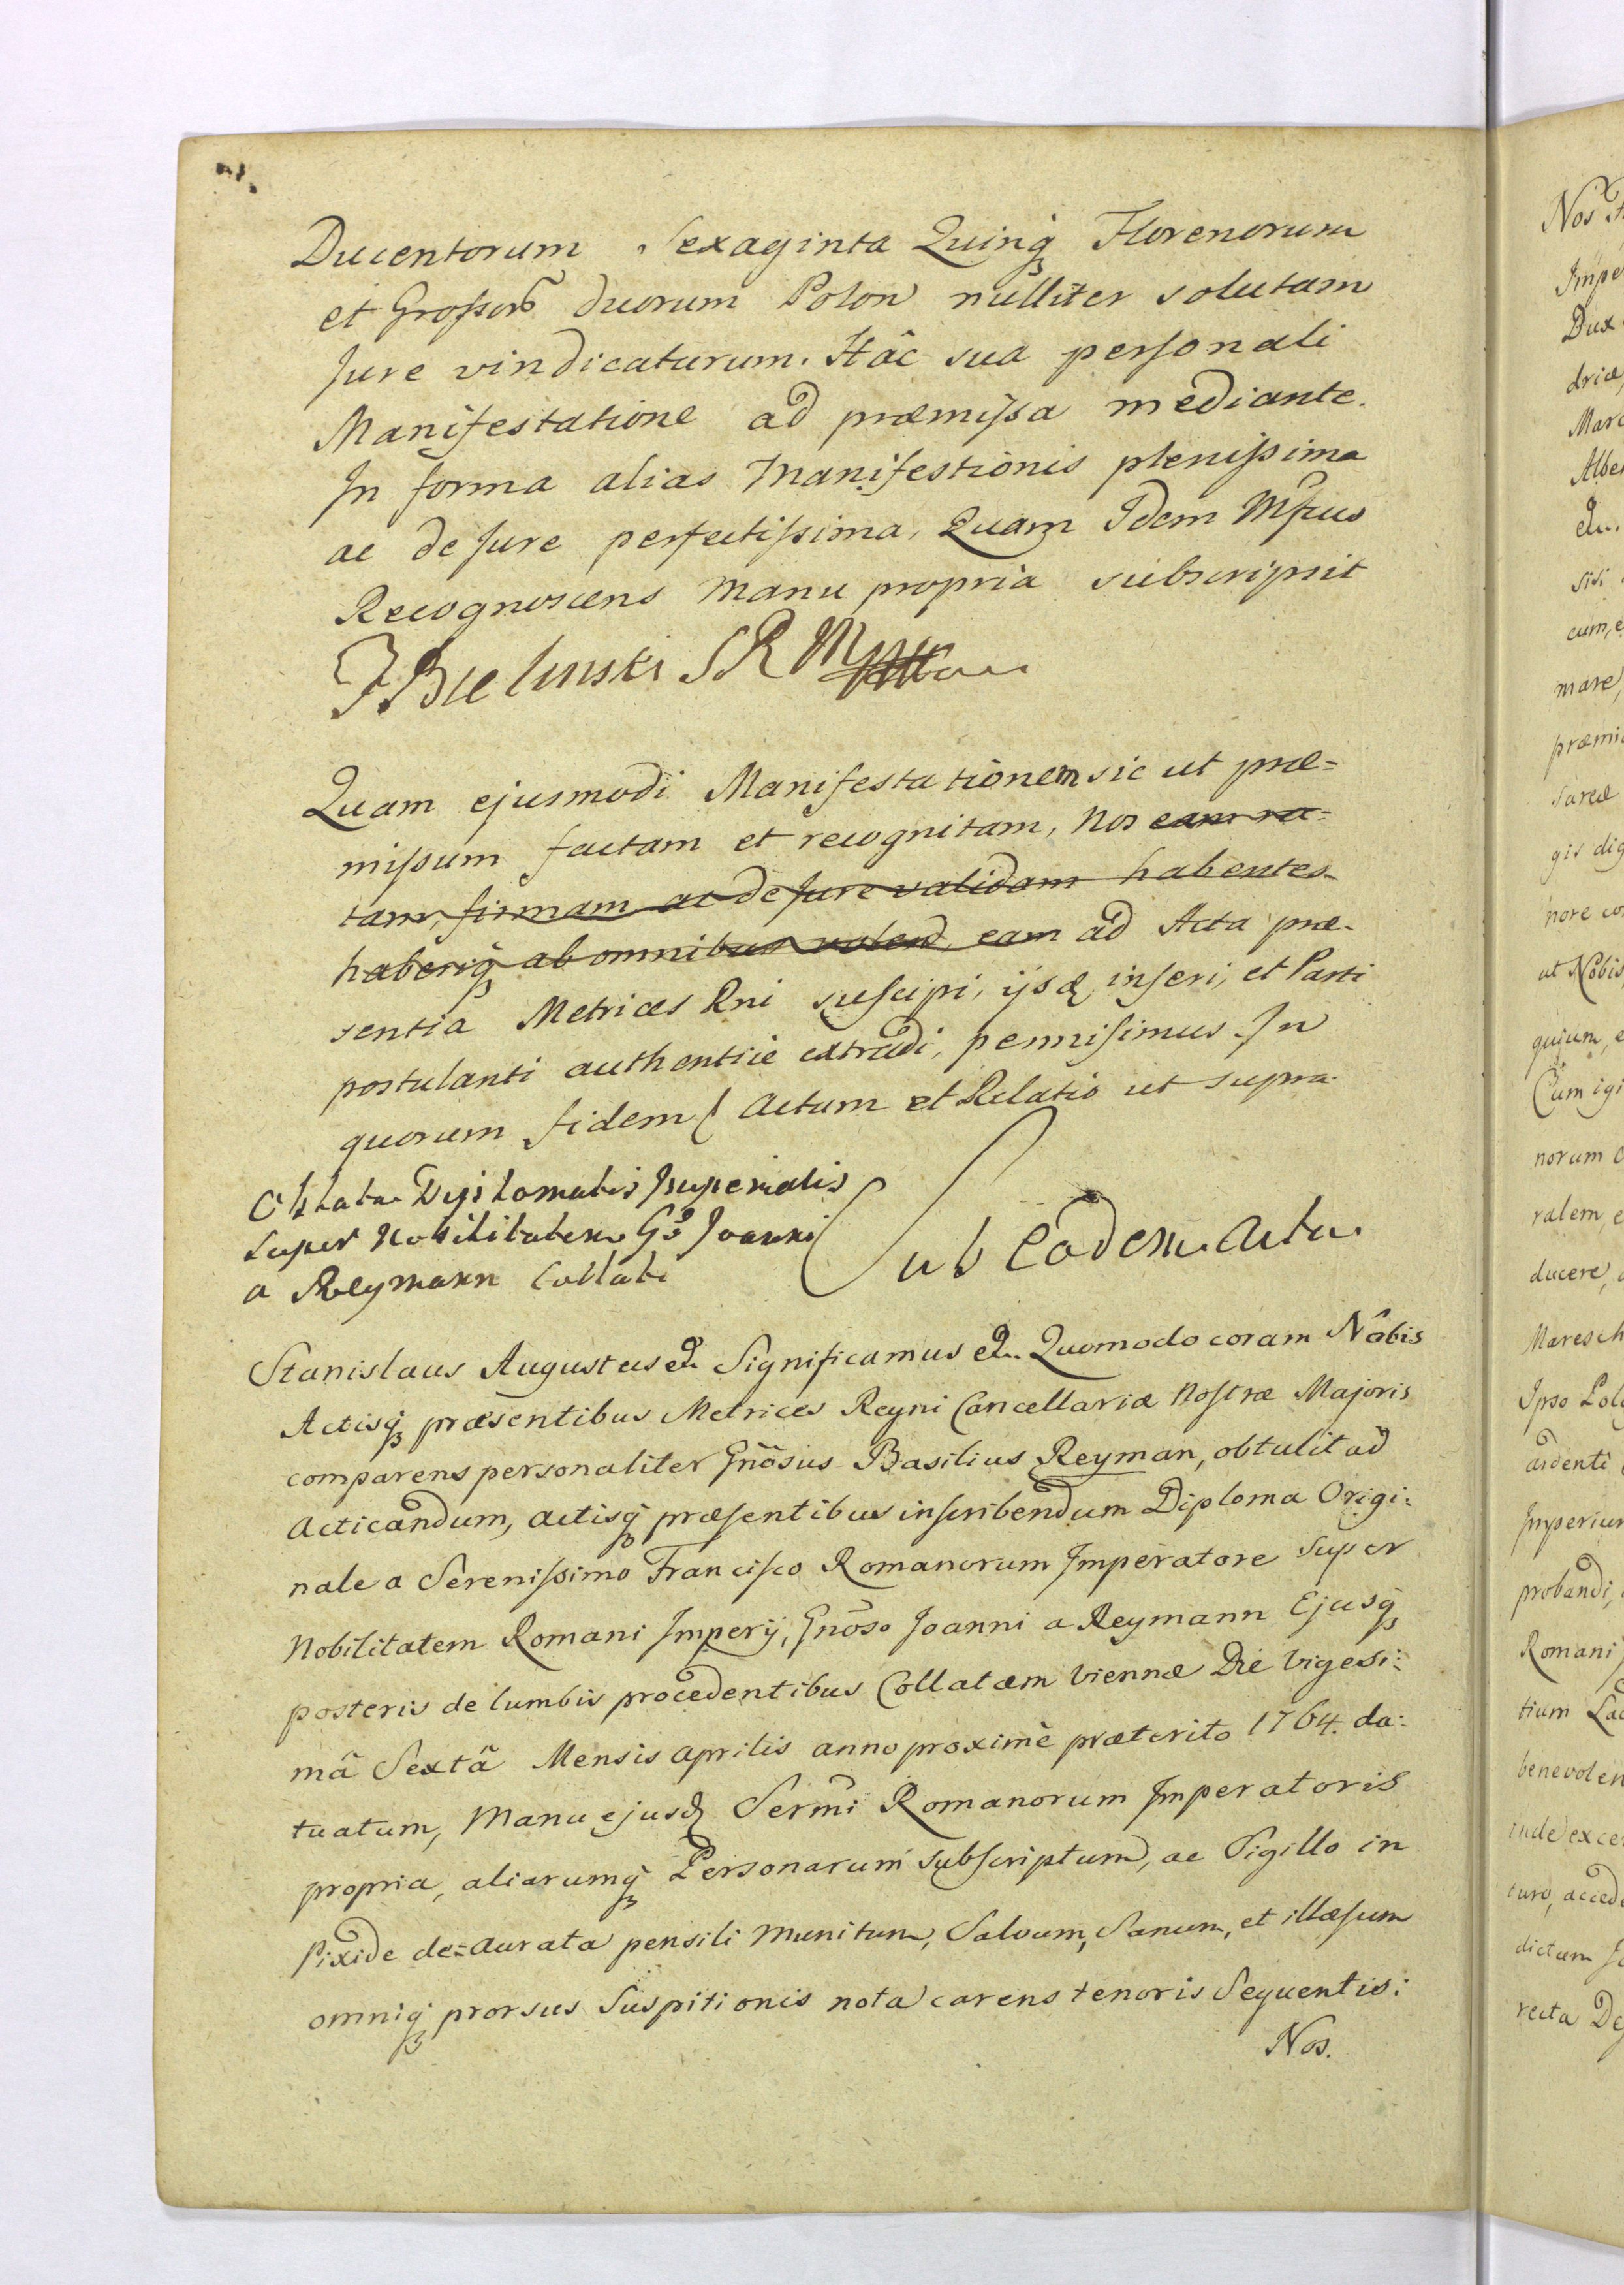 Ducentorum Sexaginta Quinq̃ Florenorum
et Grossorũ duorum Polon nulliter solutam
Jure vindicaturum. Hâc sua personali
Manifestatione ad præmissa mediante.
In forma alias Manifestionis plenissima
ac de Jure perfectissima, Quam Idem Mfcus
Recognoscens Manu propria subscripsit
FBielinski SRM
Quam ejusmodi Manifestationem sic ut præ=
missum factam et recognitam, Nos eam ra=
tam, firmam ac de Jure validam habentes
haberiq̃ ab omnibus volend, eam ad Acta præ-
sentia Metrices Rni suscipi, ijsq̃ inseri, et Parti
postulanti authentice extradi, permisimus. In
quorum fidem Actum et Relatio ut supra
Oblata Dyplomatis Imperialis
super Nobilitatem Gõ Joanni
a Reymann Collati
Sub Eadem Actu
Stanislaus Augustus &. Significamus &. Quomodo coram Nôbis
Actisq̃ præsentibus Metrices Regni Cancellariæ Nostræ Majoris
comparens personaliter Gnõsus Basilius Reyman, obtulit ad
Acticandum, actisq̃ præsentibus inscribendum Diploma Origi:
nale a Serenissimo Francisco Romanorum Imperatore super
Nobilitatem Romani Imperij, Gnõso Joanni a Reymann Ejusq̃
posteris de lumbis procedentibus Collatam Viennæ Die Vigesi:
mâ Sextâ Mensis Aprilis anno proximè præterito 1764. da:
tuatum, Manu ejusd Sermĩ Romanorum Imperatoris
propria, aliarumq̃ Personarum subscriptum, ac Sigillo in
Pixide de=aurata pensili munitum, Salvum, Sanum, et illæsum
omniq̃ prorsus Suspitionis nota carens tenoris Sequentis:
Nos.
Nos
Impe
Dux
driæ,
Marc
Alber
&.
sisi
cum, e
mare,
præmi
sareæ
gis dig
nore co
ut Nobis
quium, e
Cum igi
norum
ralem, e
ducere,
Maresch
Ipso
ardenti
Imperium
probandi,
Romani
tium
benevolen
inde exce
turo, accede
dictum
recta De